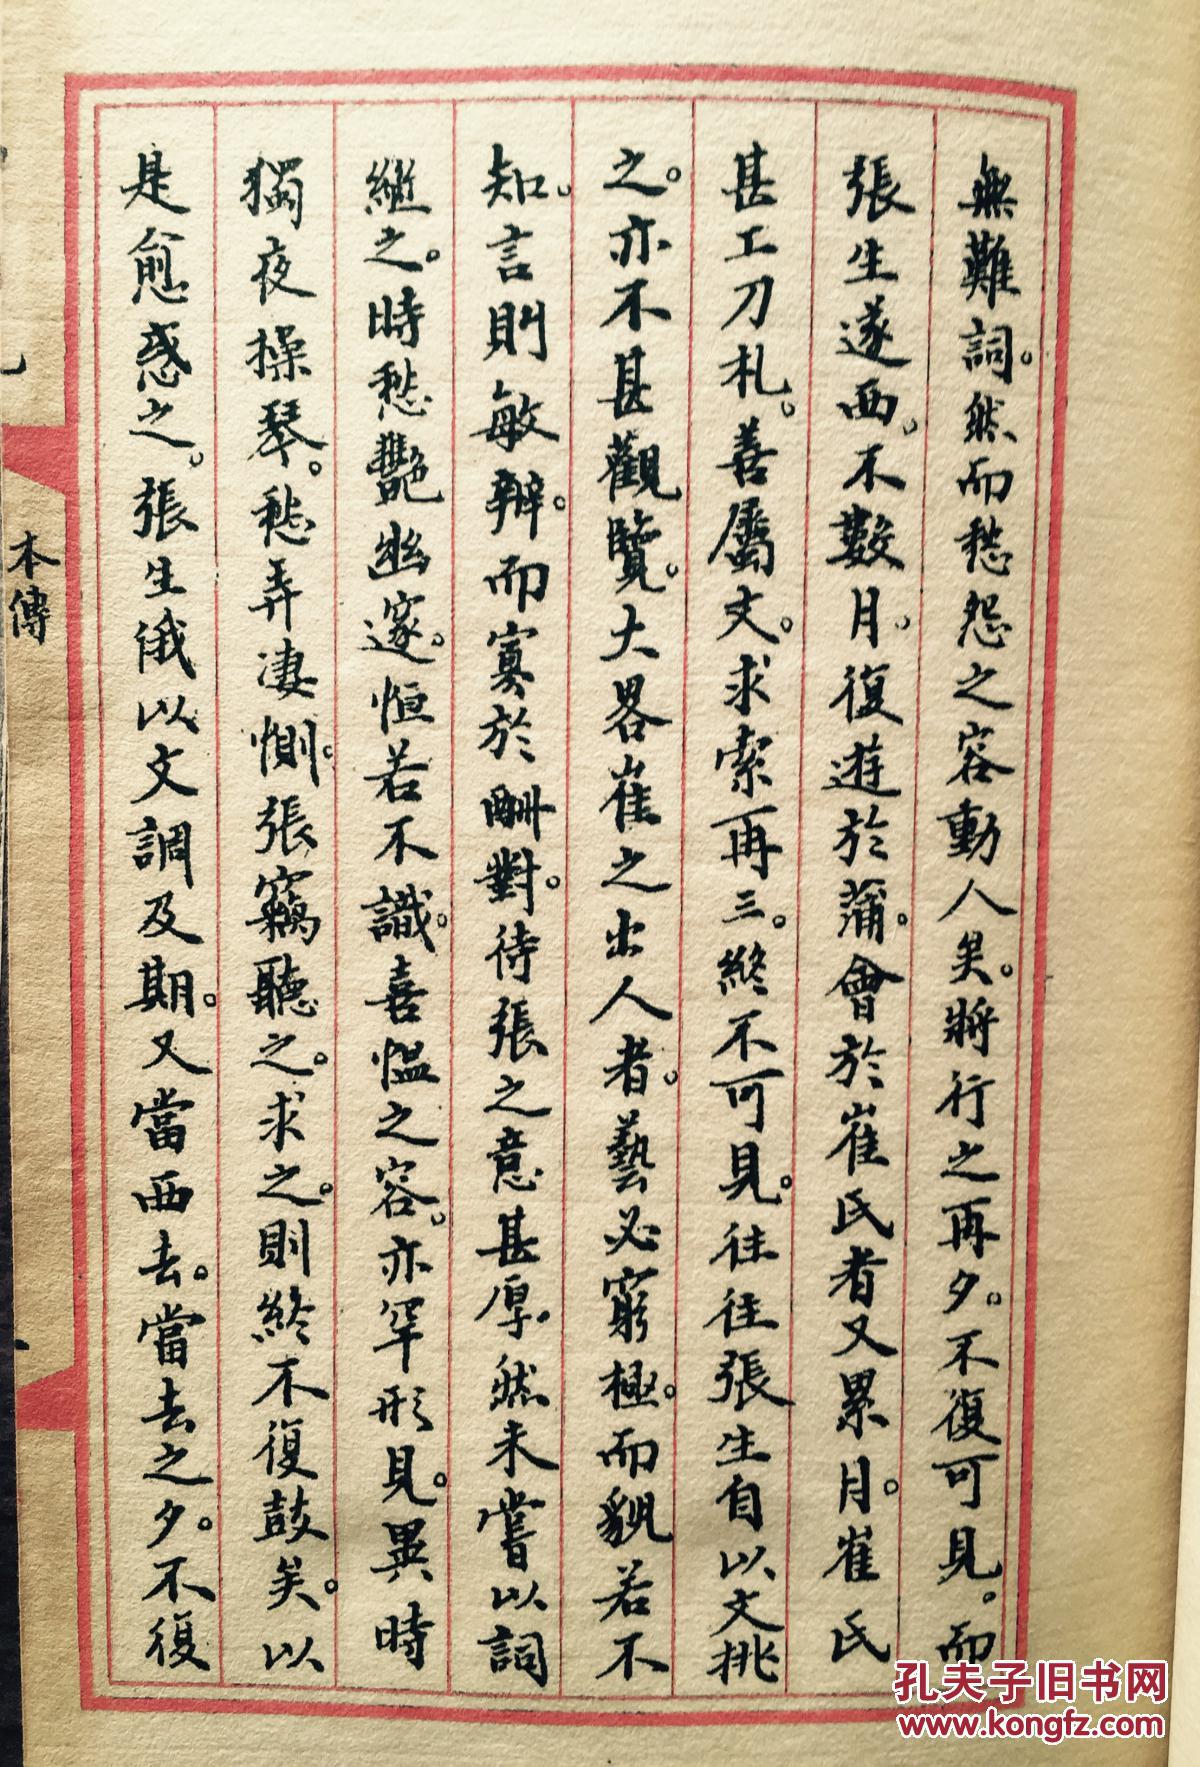 無難詞。然而愁怨之容動人矣。將行之再夕。不復可見。而
張生遂西。不數月。復遊於蒲。會於崔氏者又累月。崔氏
甚工刀札。善屬文。求索再三。終不可見。往往張生自以文挑
之。亦不甚觀覽。大畧崔之出人者。藝必窮極。而貌若不
知。言則敏辨。而寡於酬對。待張之意甚厚。然未嘗以詞
繼之。時愁艷幽邃。恒若不識。喜慍之容。亦罕形見。異時
獨夜操琴。愁弄凄惻。張竊聽之。求之。則終不復鼓矣。以
是愈惑之。張生俄以文調及期。又當西去。當去之夕。不復
本傳
孔夫子旧书网
www.kongfz.com